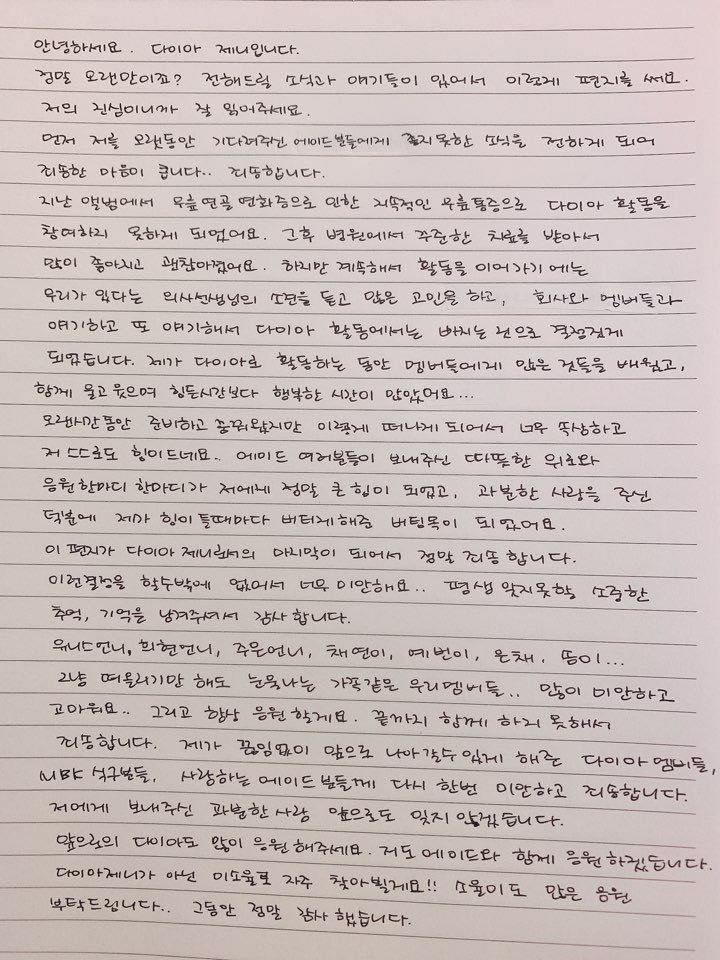 안녕하세요. 다이아 제니입니다.
정말 오랜만이죠? 전해드릴 소식과 얘기들이 있어서 이렇게 편지를 써요.
저의 진심이니까 잘 읽어주세요.
먼저 저를 오랫동안 기다려주신 에이드분들에게 좋지못한 소식을 전하게 되어
죄송한 마음이 큽니다.. 죄송합니다.
지난 앨범에서 무릎연골연화증으로 인한 지속적인 무릎통증으로 다이아 활동을
참여하지 못하게 되었어요. 그후 병원에서 꾸준한 치료를 받아서
많이 좋아지고 괜찮아졌어요. 하지만 계속해서 활동을 이어가기에는
무리가 있다는 의사선생님의 소견을 듣고 많은 고민을 하고, 회사와 멤버들과
얘기하고 또 얘기해서 다이아 활동에서는 빠지는 것으로 결정짓게
되었습니다. 제가 다이아로 활동하는 동안 멤버들에게 많은 것들을 배웠고,
함께 울고 웃으며 힘든시간보다 행복한 시간이 많았어요...
오랜시간동안 준비하고 꿈꿔왔지만 이렇게 떠나게 되어서 너무 속상하고
저 스스로도 힘이드네요.. 에이드 여러분들이 보내주신 따뜻한 위로와
응원한마디 한마디가 저에게 정말 큰 힘이 되었고, 과분한 사랑을 주신
덕분에 제가 힘이 들때마다 버티게해준 버팀목이 되었어요.
이 편지가 다이아 제니로서의 마지막이 되어서 정말 죄송합니다.
이런결정을 할수밖에 없어서 너무 미안해요.. 평생 잊지못할 소중한
추억, 기억을 남겨주셔서 감사합니다.
유니스언니, 희현언니, 주은언니, 채연이, 예빈이, 은채, 솜이...
그냥 떠올리기만 해도 눈물나는 가족같은 우리멤버들.. 많이 미안하고
고마워요.. 그리고 항상 응원할게요. 끝까지 함께 하지 못해서
죄송합니다. 제가 끊임없이 앞으로 나아갈수있게 해준 다이아 멤버들,
MBK 식구분들, 사랑하는 에이드분들께 다시 한번 미안하고 죄송합니다.
저에게 보내주신 과분한사랑 앞으로도 잊지 않겠습니다.
앞으로의 다이아도 많이 응원해주세요. 저도 에이드와 함께 응원하겠습니다.
다이아제니가 아닌 이소율로 자주 찾아뵐게요!! 소율이도 많은 응원
부탁드립니다.. 그동안 정말 감사했습니다.